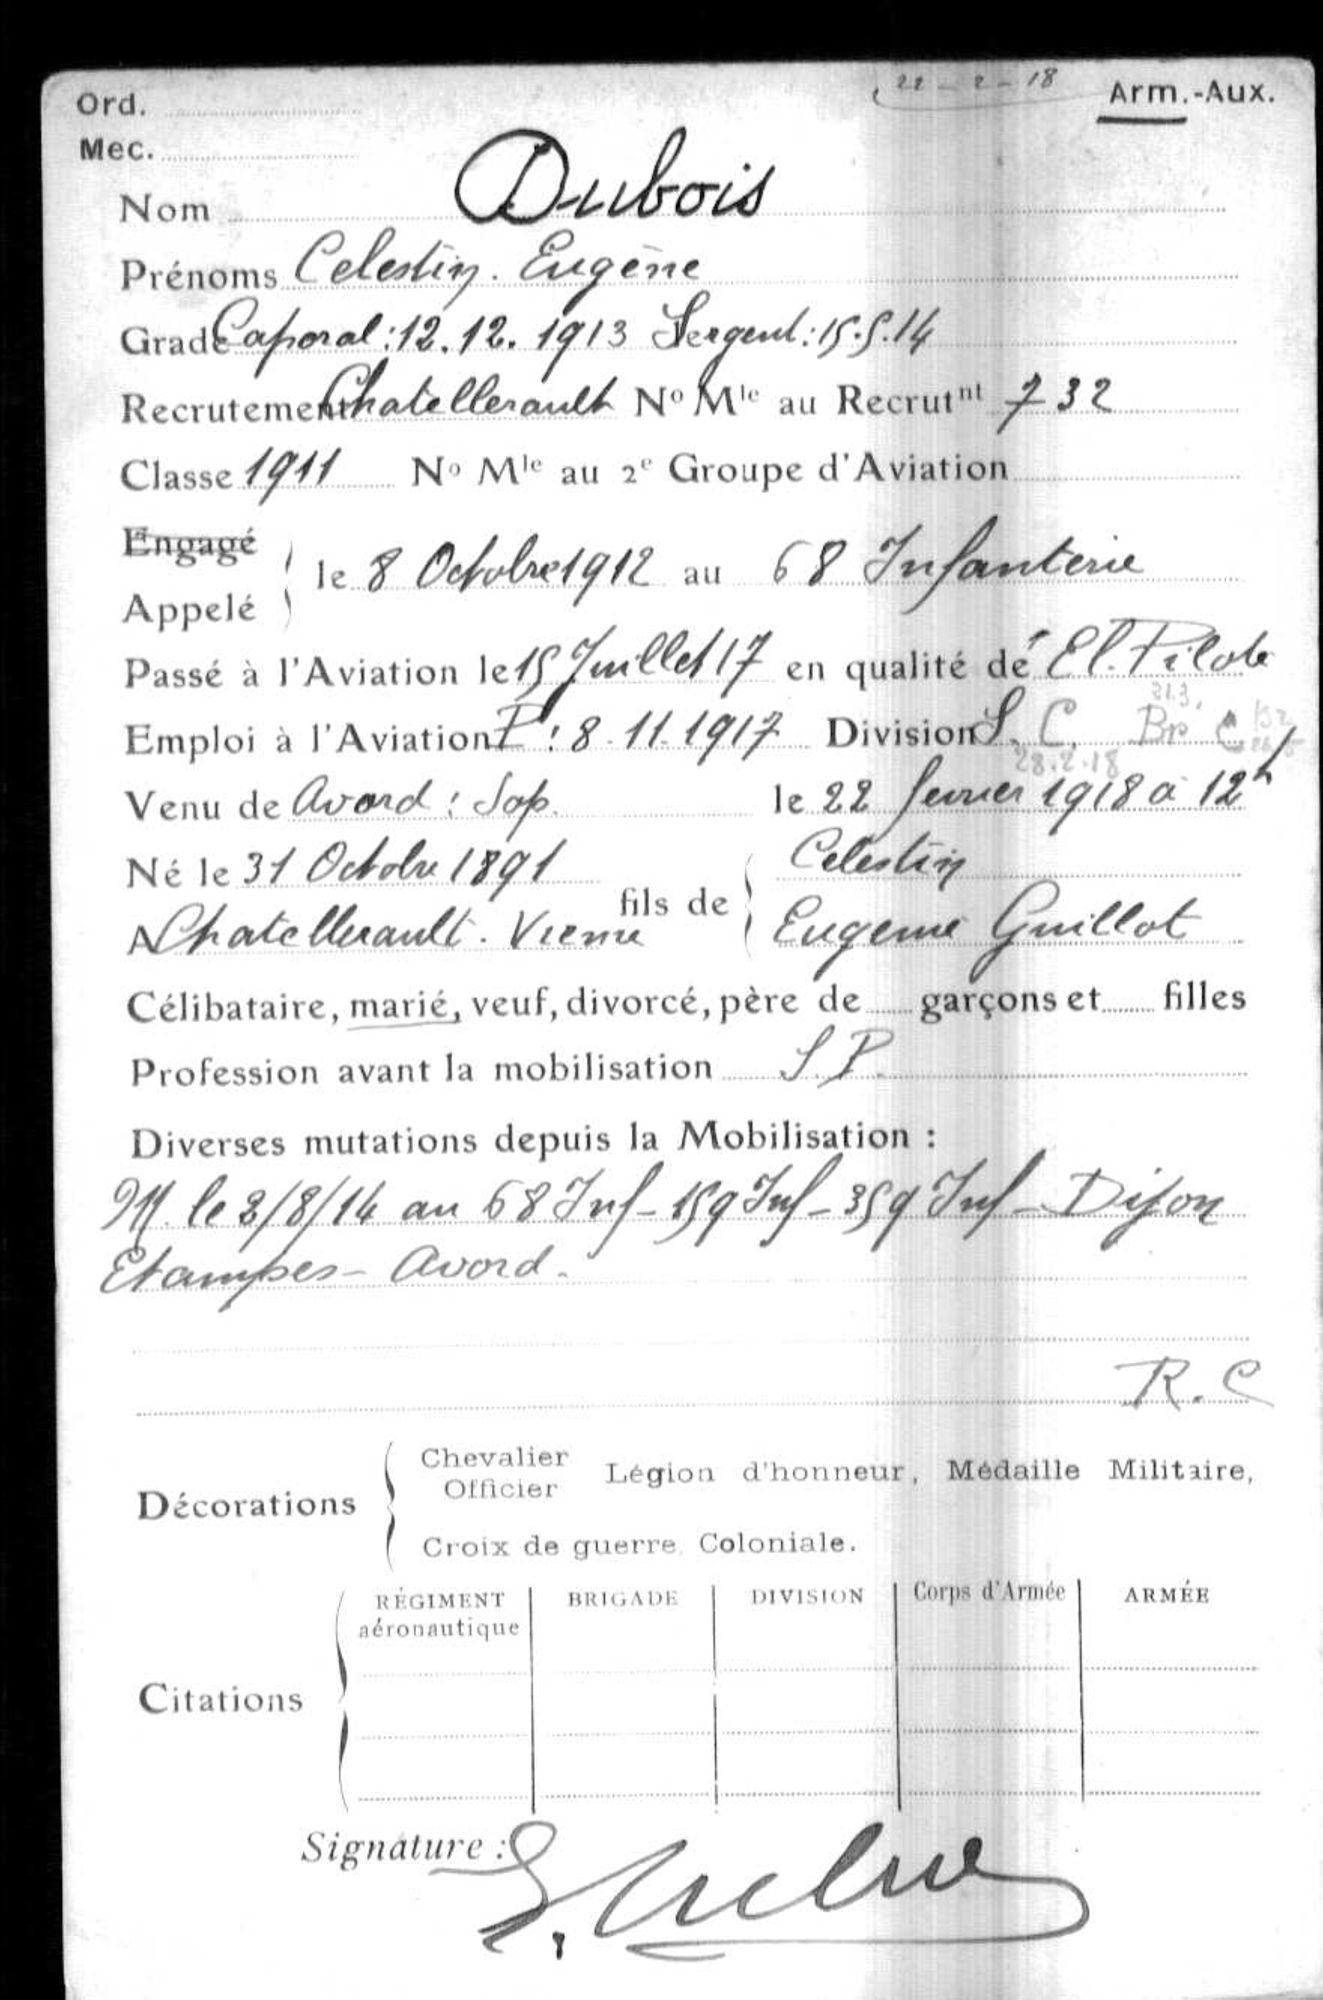 22 - 2 - 18
Arm.-Aux.
Ord.
Mec.
Nom Dubois
Prénoms Celestin. Eugène
Grade Caporal : 12.12.1913 Sergent : 15.9.14
Recrutement Chatellerault No Mle au Recrutnt 732
Classe 1911 No Mle au 2e Groupe d'Aviation
Engagé
Appelé
le 8 Octobre 1912 au 68 Infanterie
Passé à l'Aviation le 15 Juillet 17 en qualité de El. Pilote
21.3.
Emploi à l'Aviation P : 8.11.1917 Division S. C. Br C
28.2.18
Venu de Avord : Sop. le 22 fevrier 1918 à 12h
Né le 31 Octobre 1891
A Chatellerault. Vienne
fils de
Celestin
Eugenie Guillot
Célibataire, marié, veuf, divorcé, père de garçons et filles
Profession avant la mobilisation S.P.
Diverses mutations depuis la Mobilisation :
M. le 3/8/14 au 68 Inf - 159 Inf - 359 Inf - Dijon
Etampes - Avord.
R.C
Décorations
Chevalier
Officier
Légion d'honneur, Médaille Militaire,
Croix de guerre. Coloniale.
Citations
RÉGIMENT aéronautique
BRIGADE
DIVISION
Corps d'Armée
ARMÉE
Signature :